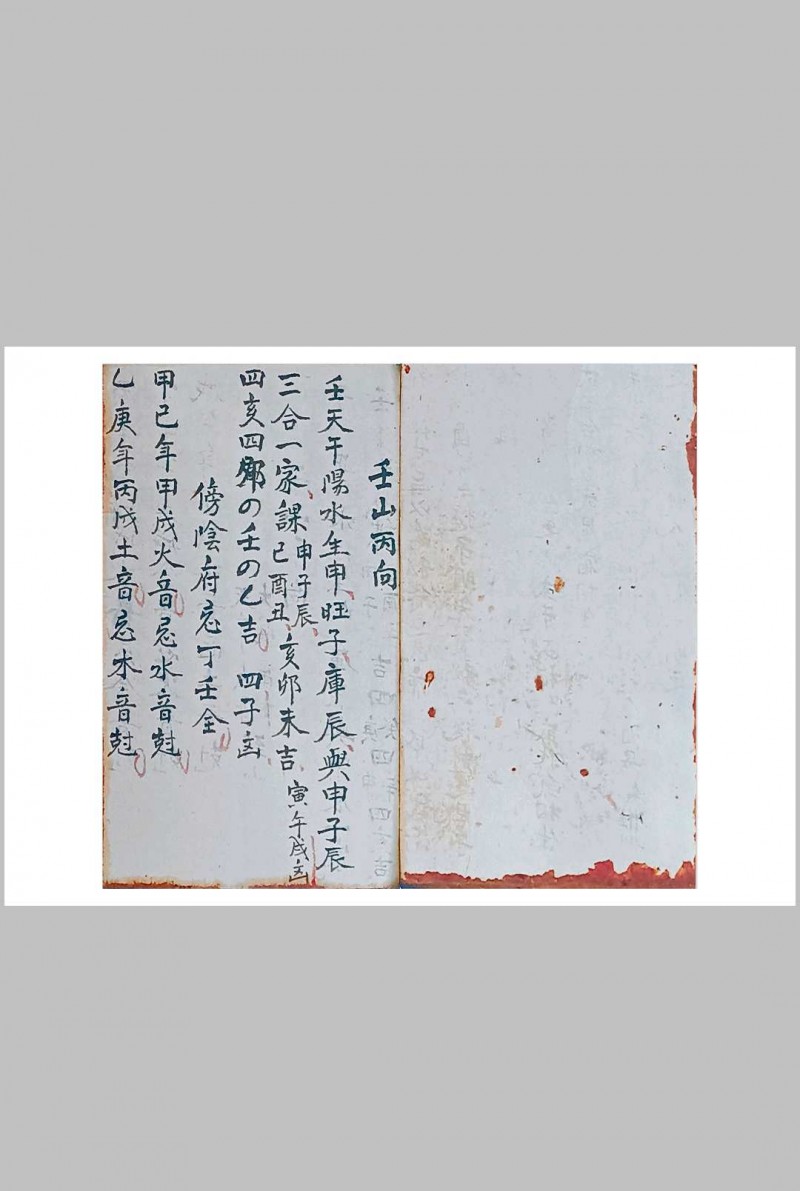 壬山丙向
壬天干陽水生申旺子庫辰與申子辰
三合一家課申子辰巳酉丑亥卯未吉寅午戌凶
四亥四卯の壬の乙吉 四子凶
傍陰府忌丁壬全
甲己年甲戌火音忌水音尅
乙庚年丙戌土音忌木音尅